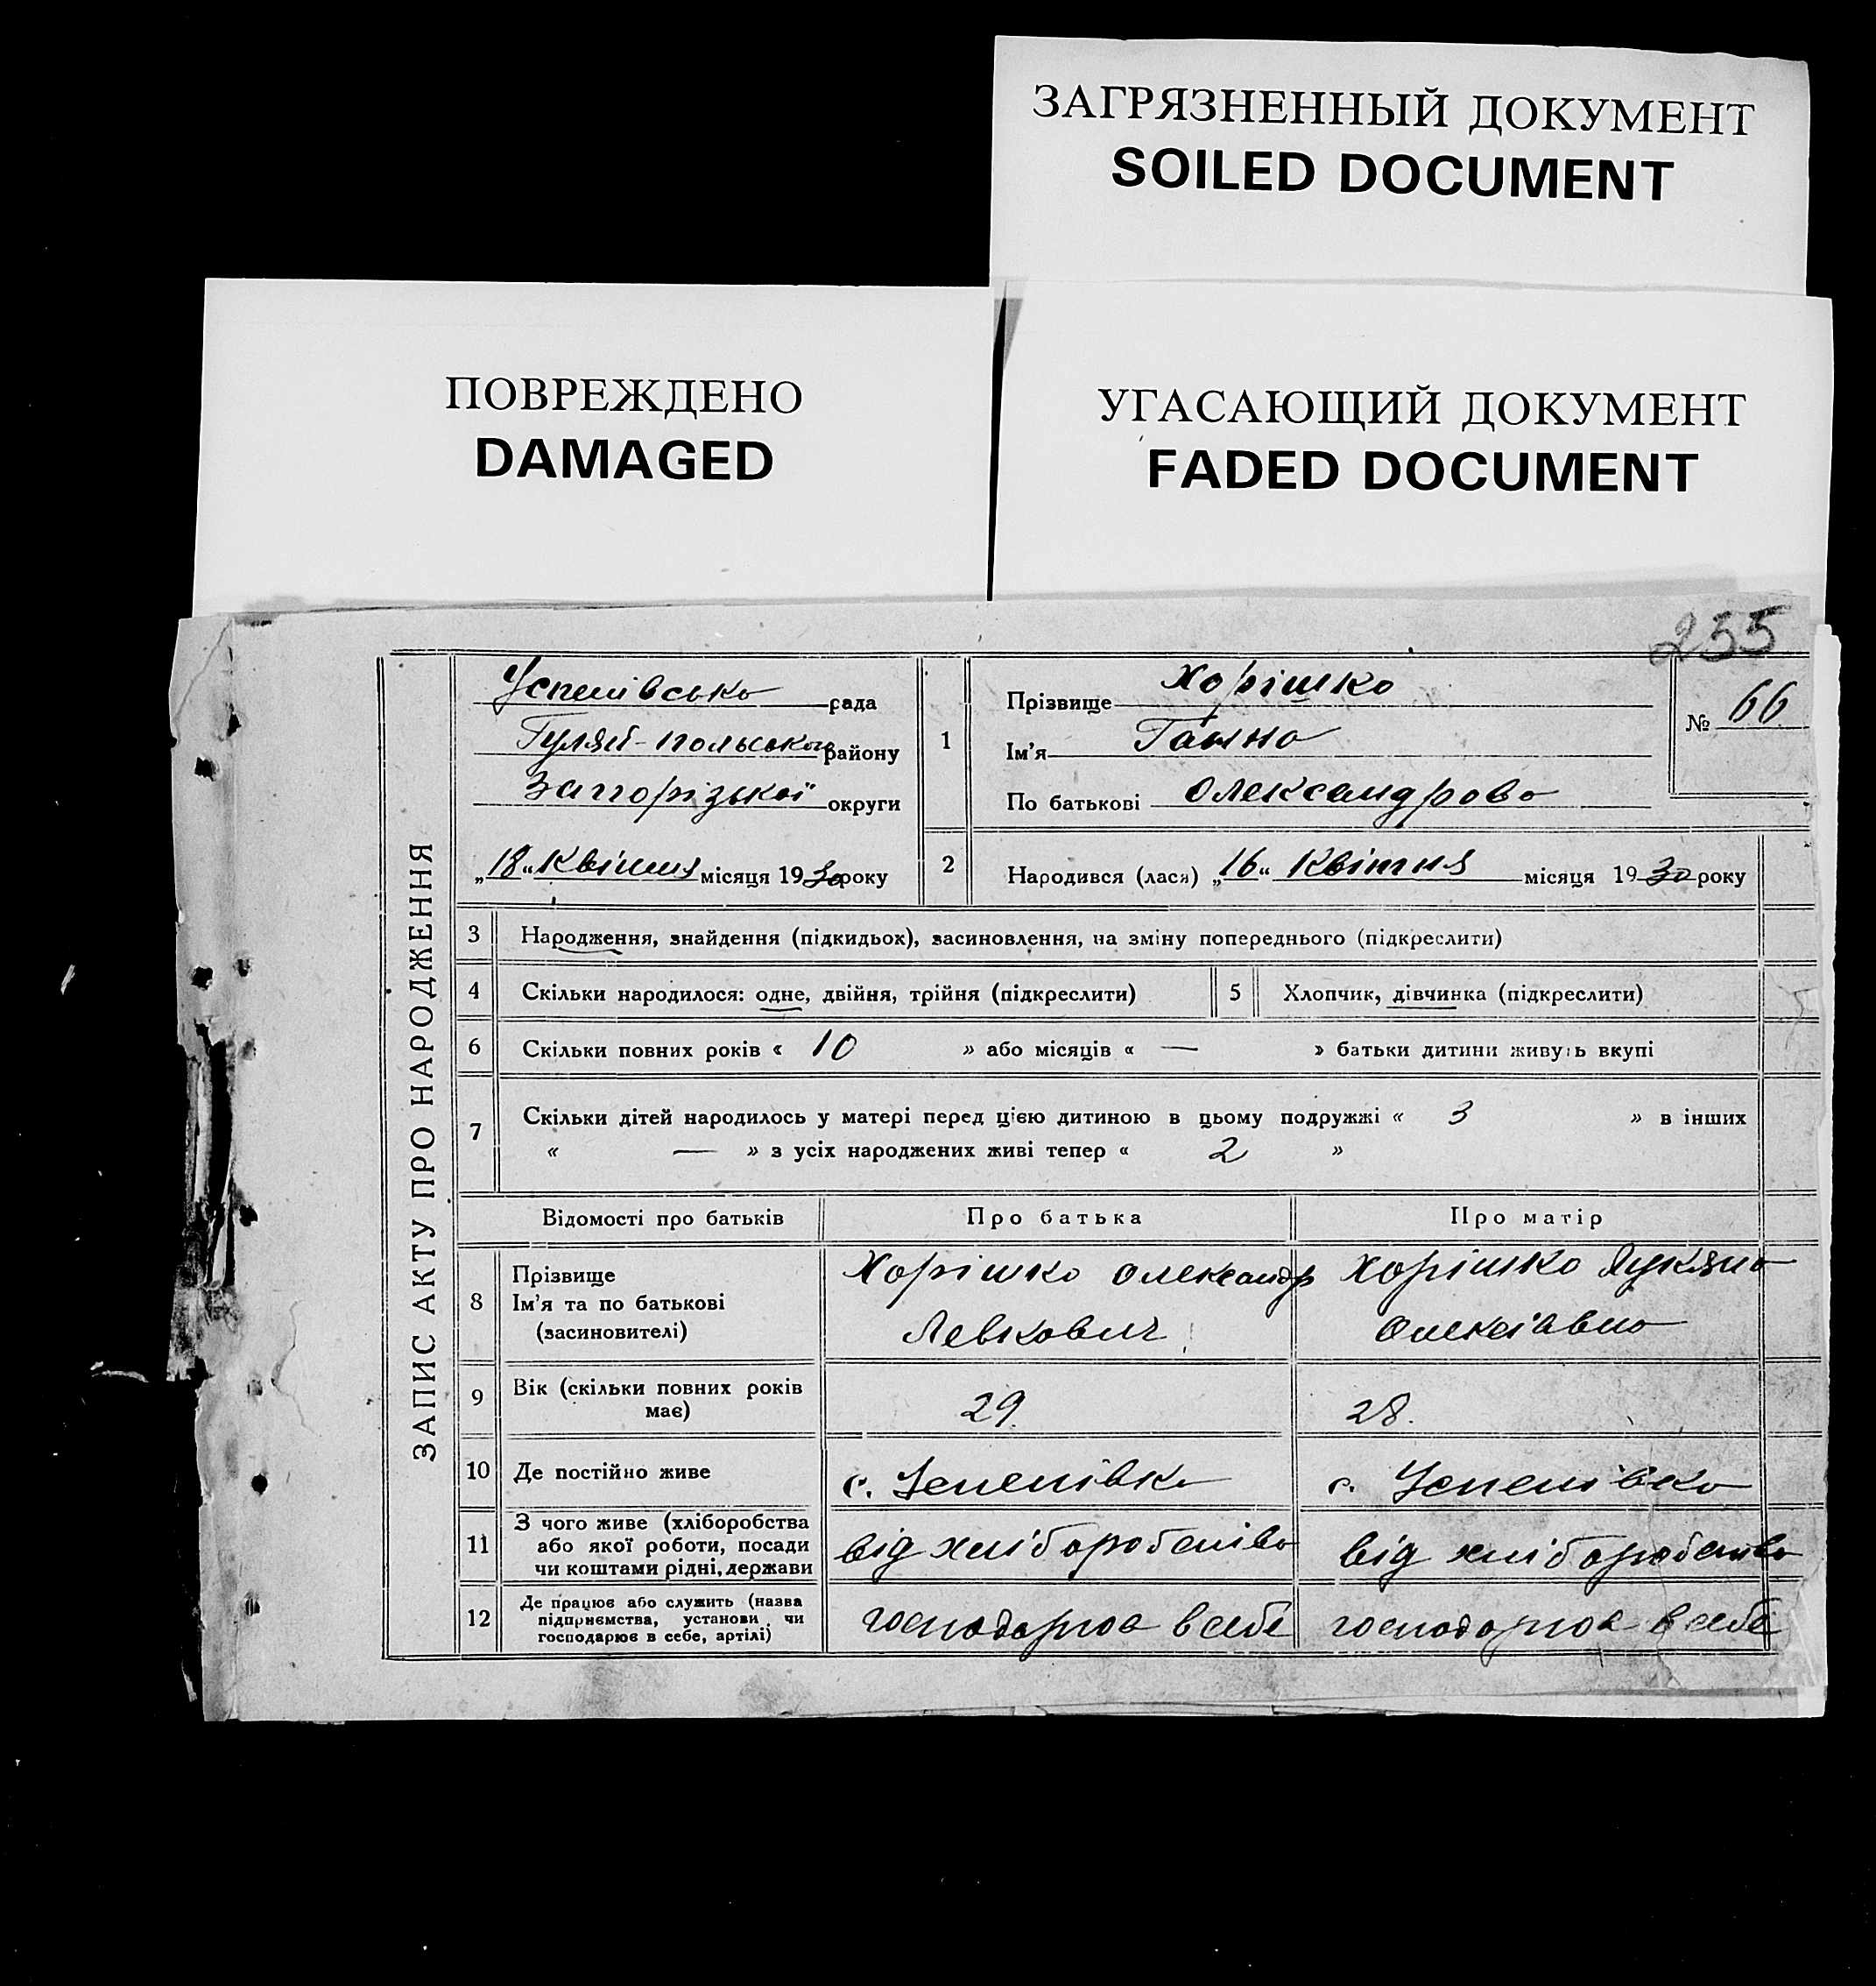 ЗАГРЯЗНЕННЫЙ ДОКУМЕНТ
SOILED DOCUMENT
ПОВРЕЖДЕНО
DAMAGED
УГАСАЮЩИЙ ДОКУМЕНТ
FADED DOCUMENT
255
ЗАПИС АКТУ ПРО НАРОДЖЕННЯ
Успенівсько рада
Гуляй-польського району
Запорізької округи
„18“ Квітня місяця 1930 року
1
Прізвище Хорішко
Ім'я Ганна
По батькові Олександрово
№ 66
2 Народився (лася) „16“ Квітня місяця 1930 року
3 Народження, знайдення (підкидьох), засиновлення, на зміну попереднього (підкреслити)
4 Скільки народилося: одне, двійня, трійня (підкреслити) 5 Хлопчик, дівчинка (підкреслити)
6 Скільки повних років « 10 » або місяців « — » батьки дитини живуть вкупі
7 Скільки дітей народилось у матері перед цією дитиною в цьому подружжі « 3 » в інших
« — » з усіх народжених живі тепер « 2 »
Відомості про батьків Про батька Про матір
8 Прізвище
Ім'я та по батькові
(засиновителі)
Хорішко Олександр
Левкович
Хорішко
Олексіівно
9 Вік (скільки повних років
має)
29.
28.
10 Де постійно живе с. Успенівка с. Успенівка
11 З чого живе (хліборобства
або якої роботи, посади
чи коштами рідні, держави
від хліборобства
від хліборобства
12 Де працює або служить (назва
підприємства, установи чи
господарює в себе, артілі)
господарює в себе
господарює в себе